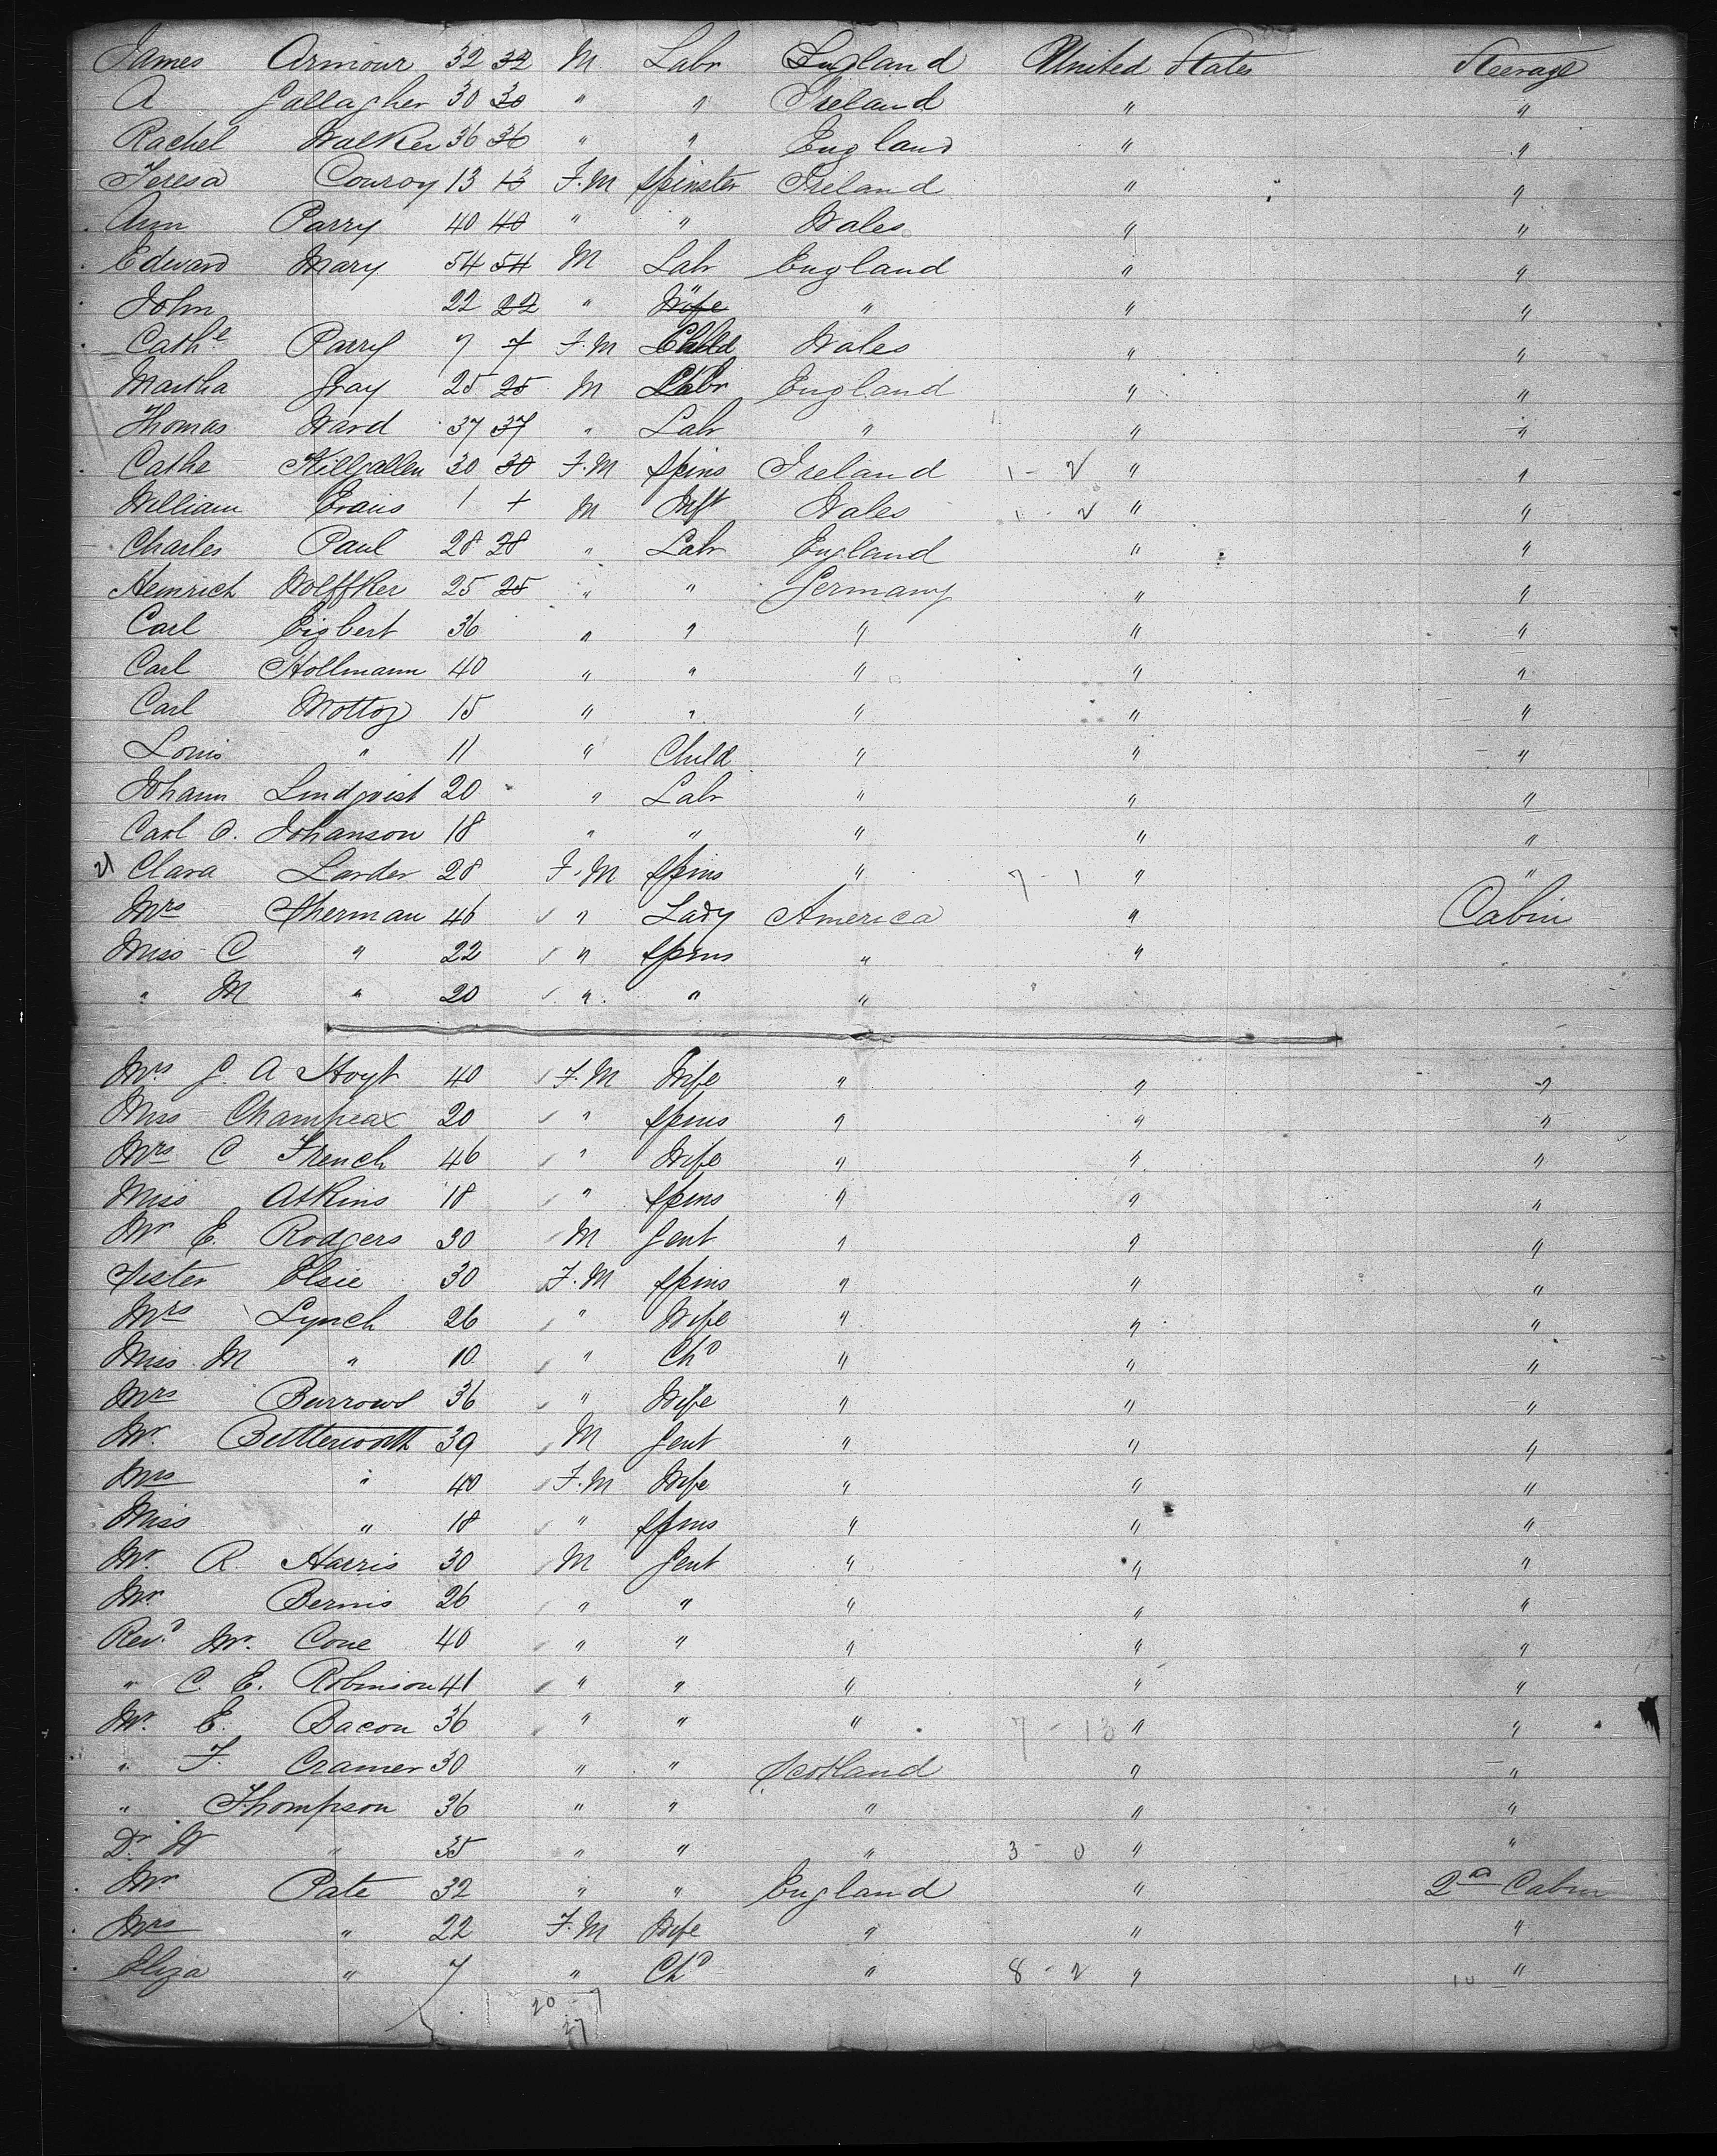 James Armour 32 32 M Labr England United States Steerage
A Gallagher 30 30 " " Ireland " "
Rachel Walker 36 36 " " England " "
Teresa Conroy 13 13 F.M Spinster Ireland " "
Ann Parry 40 40 " " Wales " "
Edward Mary 54 54 M Labr England " "
John 22 22 " " Wife " " "
Cathe Parry 7 7 F.M Child Wales " "
Martha Gray 25 25 M Labr England " "
Thomas Ward 37 37 " Labr " " "
Cathe Killcallen 30 30 F.M Spins Ireland 1 - 2 " "
William Evans 1 1 M Inft Wales 1 - 2 " "
Charles Paul 28 28 " Labr England " "
Heinrich Wolffker 25 25 " " Germany " "
Carl Eigbert 36 " " " " "
Carl Hollmann 40 " " " " "
Carl Mottoz 15 " " " " "
Louis " 11 " Child " " "
Johann Lindqvist 20 " Labr " " "
Carl O. Johanson 18 " " " " "
21 Clara Larder 28 F.M Spins " 7 - 1 " "
Mrs Sherman 46 " Lady America " Cabin
Miss C " 22 " Spins " "
" M " 20 " " "
Mrs G. A Hoyt 40 F.M Wife " " "
Miss Champeax 20 " Spins " " "
Mrs C French 46 " Wife " " "
Miss Atkins 18 " Spins " " "
Mr E. Rodgers 30 M Gent " " "
Sister Elsie 30 F.M Spins " " "
Mrs Lynch 26 " Wife " " "
Miss M " 10 " Chd " " "
Mrs Burrows 36 " Wife " " "
Mr. Butterworth 39 M Gent " " "
Mrs " 40 F.M Wife " " "
Miss " 18 " Spins " " "
Mr. R. Harris 30 M Gent " " "
Mr Bernis 26 " " " " "
Revd Mr. Cone 40 " " " " "
" C. E. Robinson 41 " " " " "
Mr. E. Bacon 36 " " " 7 - 13 " "
" F. Cramer 30 " " Scotland " "
" Thompson 36 " " " " "
Dr W " 35 " " " 3 - 0 " "
Mr Pate 32 " " England " 2d Cabin
Mrs " 22 F.M Wife " " "
Eliza " 7 " Chd " 8 - 2 " 10 "
20 - 7
27